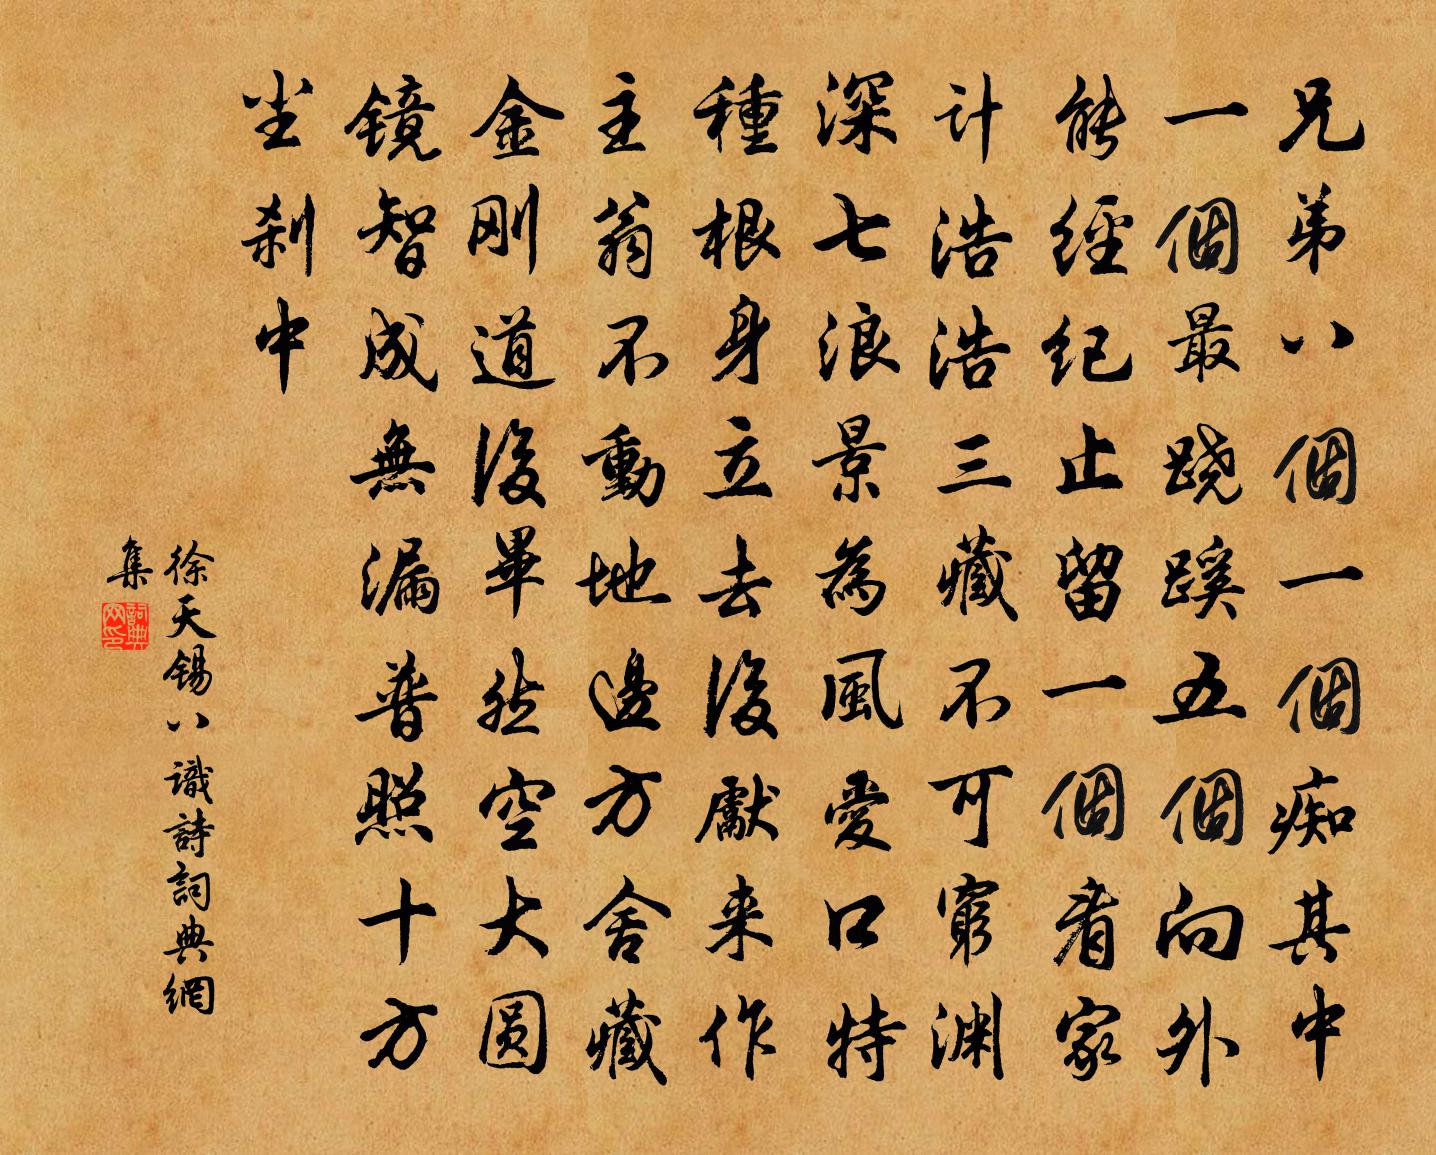 兄弟八個一個痴其中
一個最跷蹊五個向外
能經纪止留一個看家
计浩浩三藏不可窮渊
深七浪景為風愛口特
種根身立去後獻来作
主翁不動地邊方舍藏
金刚道後畢然空大圆
镜智成無漏普照十方
尘刹中
徐天锡八識詩詞典網
集
詩詞典網印